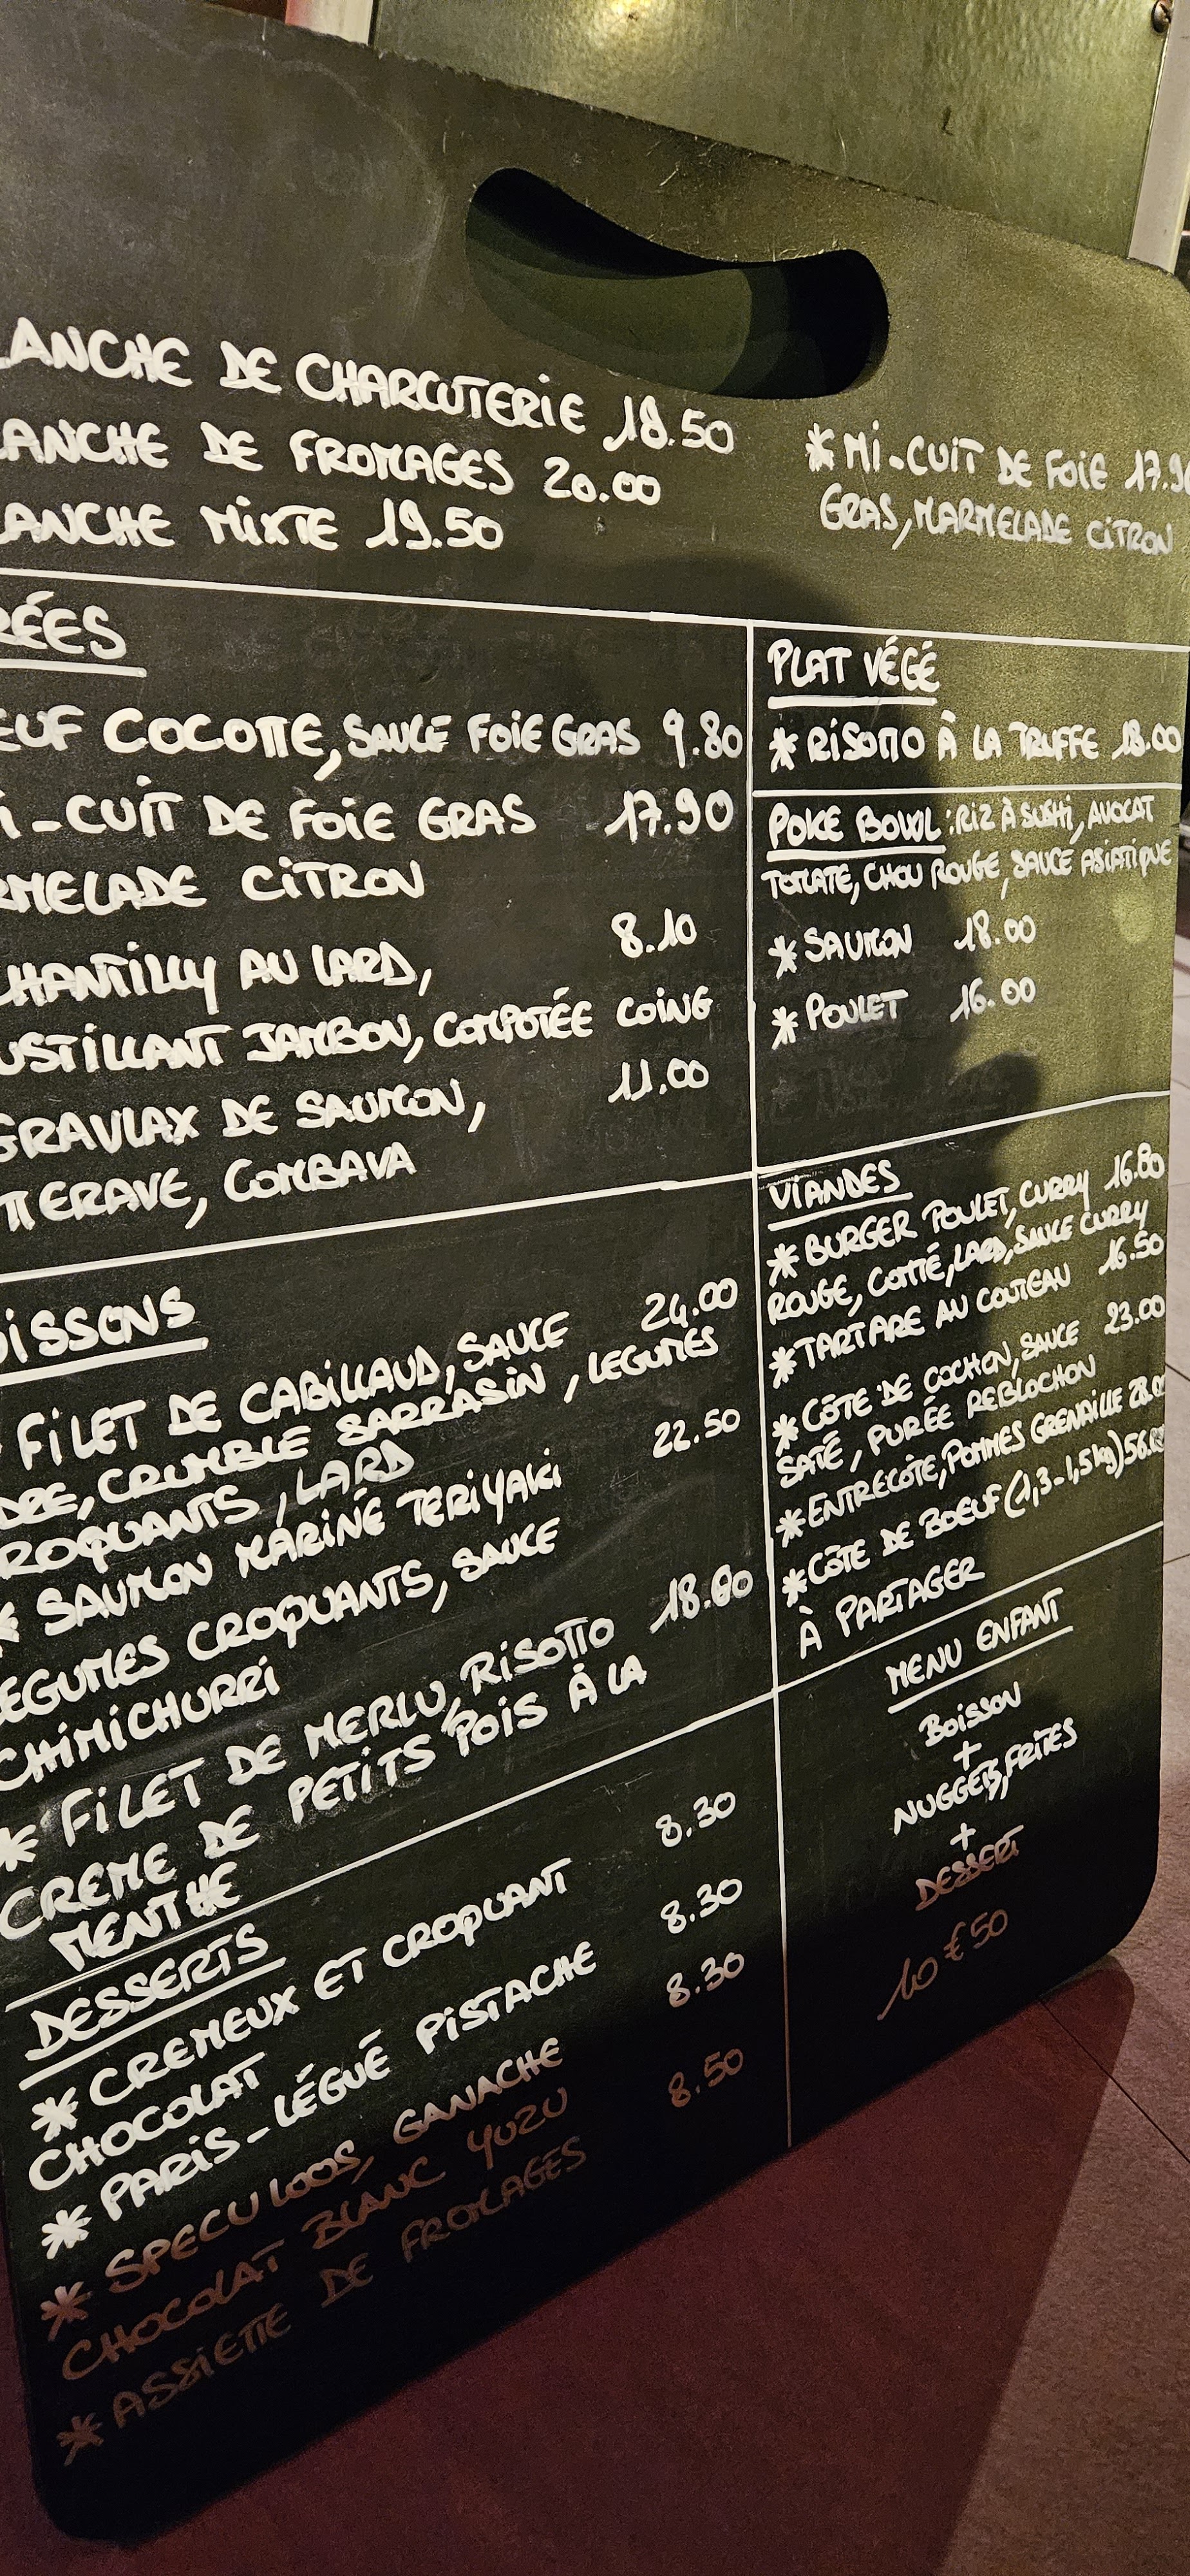 LANCHE DE CHARCUTERIE 18.50
LANCHE DE FROMAGES 20.00
LANCHE MIXTE 19.50
* MI-CUIT DE FOIE 17.90
GRAS, MARMELADE CITRON
RÉES
EUF COCOTTE, SAUCE FOIE GRAS 9.80
I-CUIT DE FOIE GRAS 17.90
RMELADE CITRON
CHANTILLY AU LARD, 8.10
USTILLANT JAMBON, COMPOTÉE COING
GRAVLAX DE SAUMON, 11.00
TTERAVE, COMBAVA
PLAT VÉGÉ
* RISOTTO À LA TRUFFE 18.00
POKE BOWL : RIZ À SUSHI, AVOCAT
TOMATE, CHOU ROUGE, SAUCE ASIATIQUE
* SAUMON 18.00
* POULET 16.00
OISSONS
FILET DE CABILLAUD, SAUCE 24.00
DRE, CRUMBLE SARRASIN, LEGUMES
ROQUANTS, LARD
* SAUMON MARINÉ TERIYAKI 22.50
EGUMES CROQUANTS, SAUCE
CHIMICHURRI
* FILET DE MERLU, RISOTTO 18.80
CREME DE PETITS POIS À LA
MENTHE
VIANDES
* BURGER POULET, CURRY 16.80
ROUGE, COMTÉ, LARD, SAUCE CURRY
* TARTARE AU COUTEAU 16.50
* CÔTE DE COCHON, SAUCE 23.00
SATÉ, PURÉE REBLOCHON
* ENTRECÔTE, POMMES GRENAILLE 28.0
* CÔTE DE BOEUF (1,3-1,5kg) 56.
À PARTAGER
DESSERTS
* CREMEUX ET CROQUANT 8.30
CHOCOLAT
* PARIS-LÉGUÉ PISTACHE 8.30
* SPECULOOS, GANACHE 8.30
CHOCOLAT BLANC YUZU
* ASSIETTE DE FROMAGES 8.50
MENU ENFANT
BOISSON
+
NUGGETS, FRITES
+
DESSERT
10€50